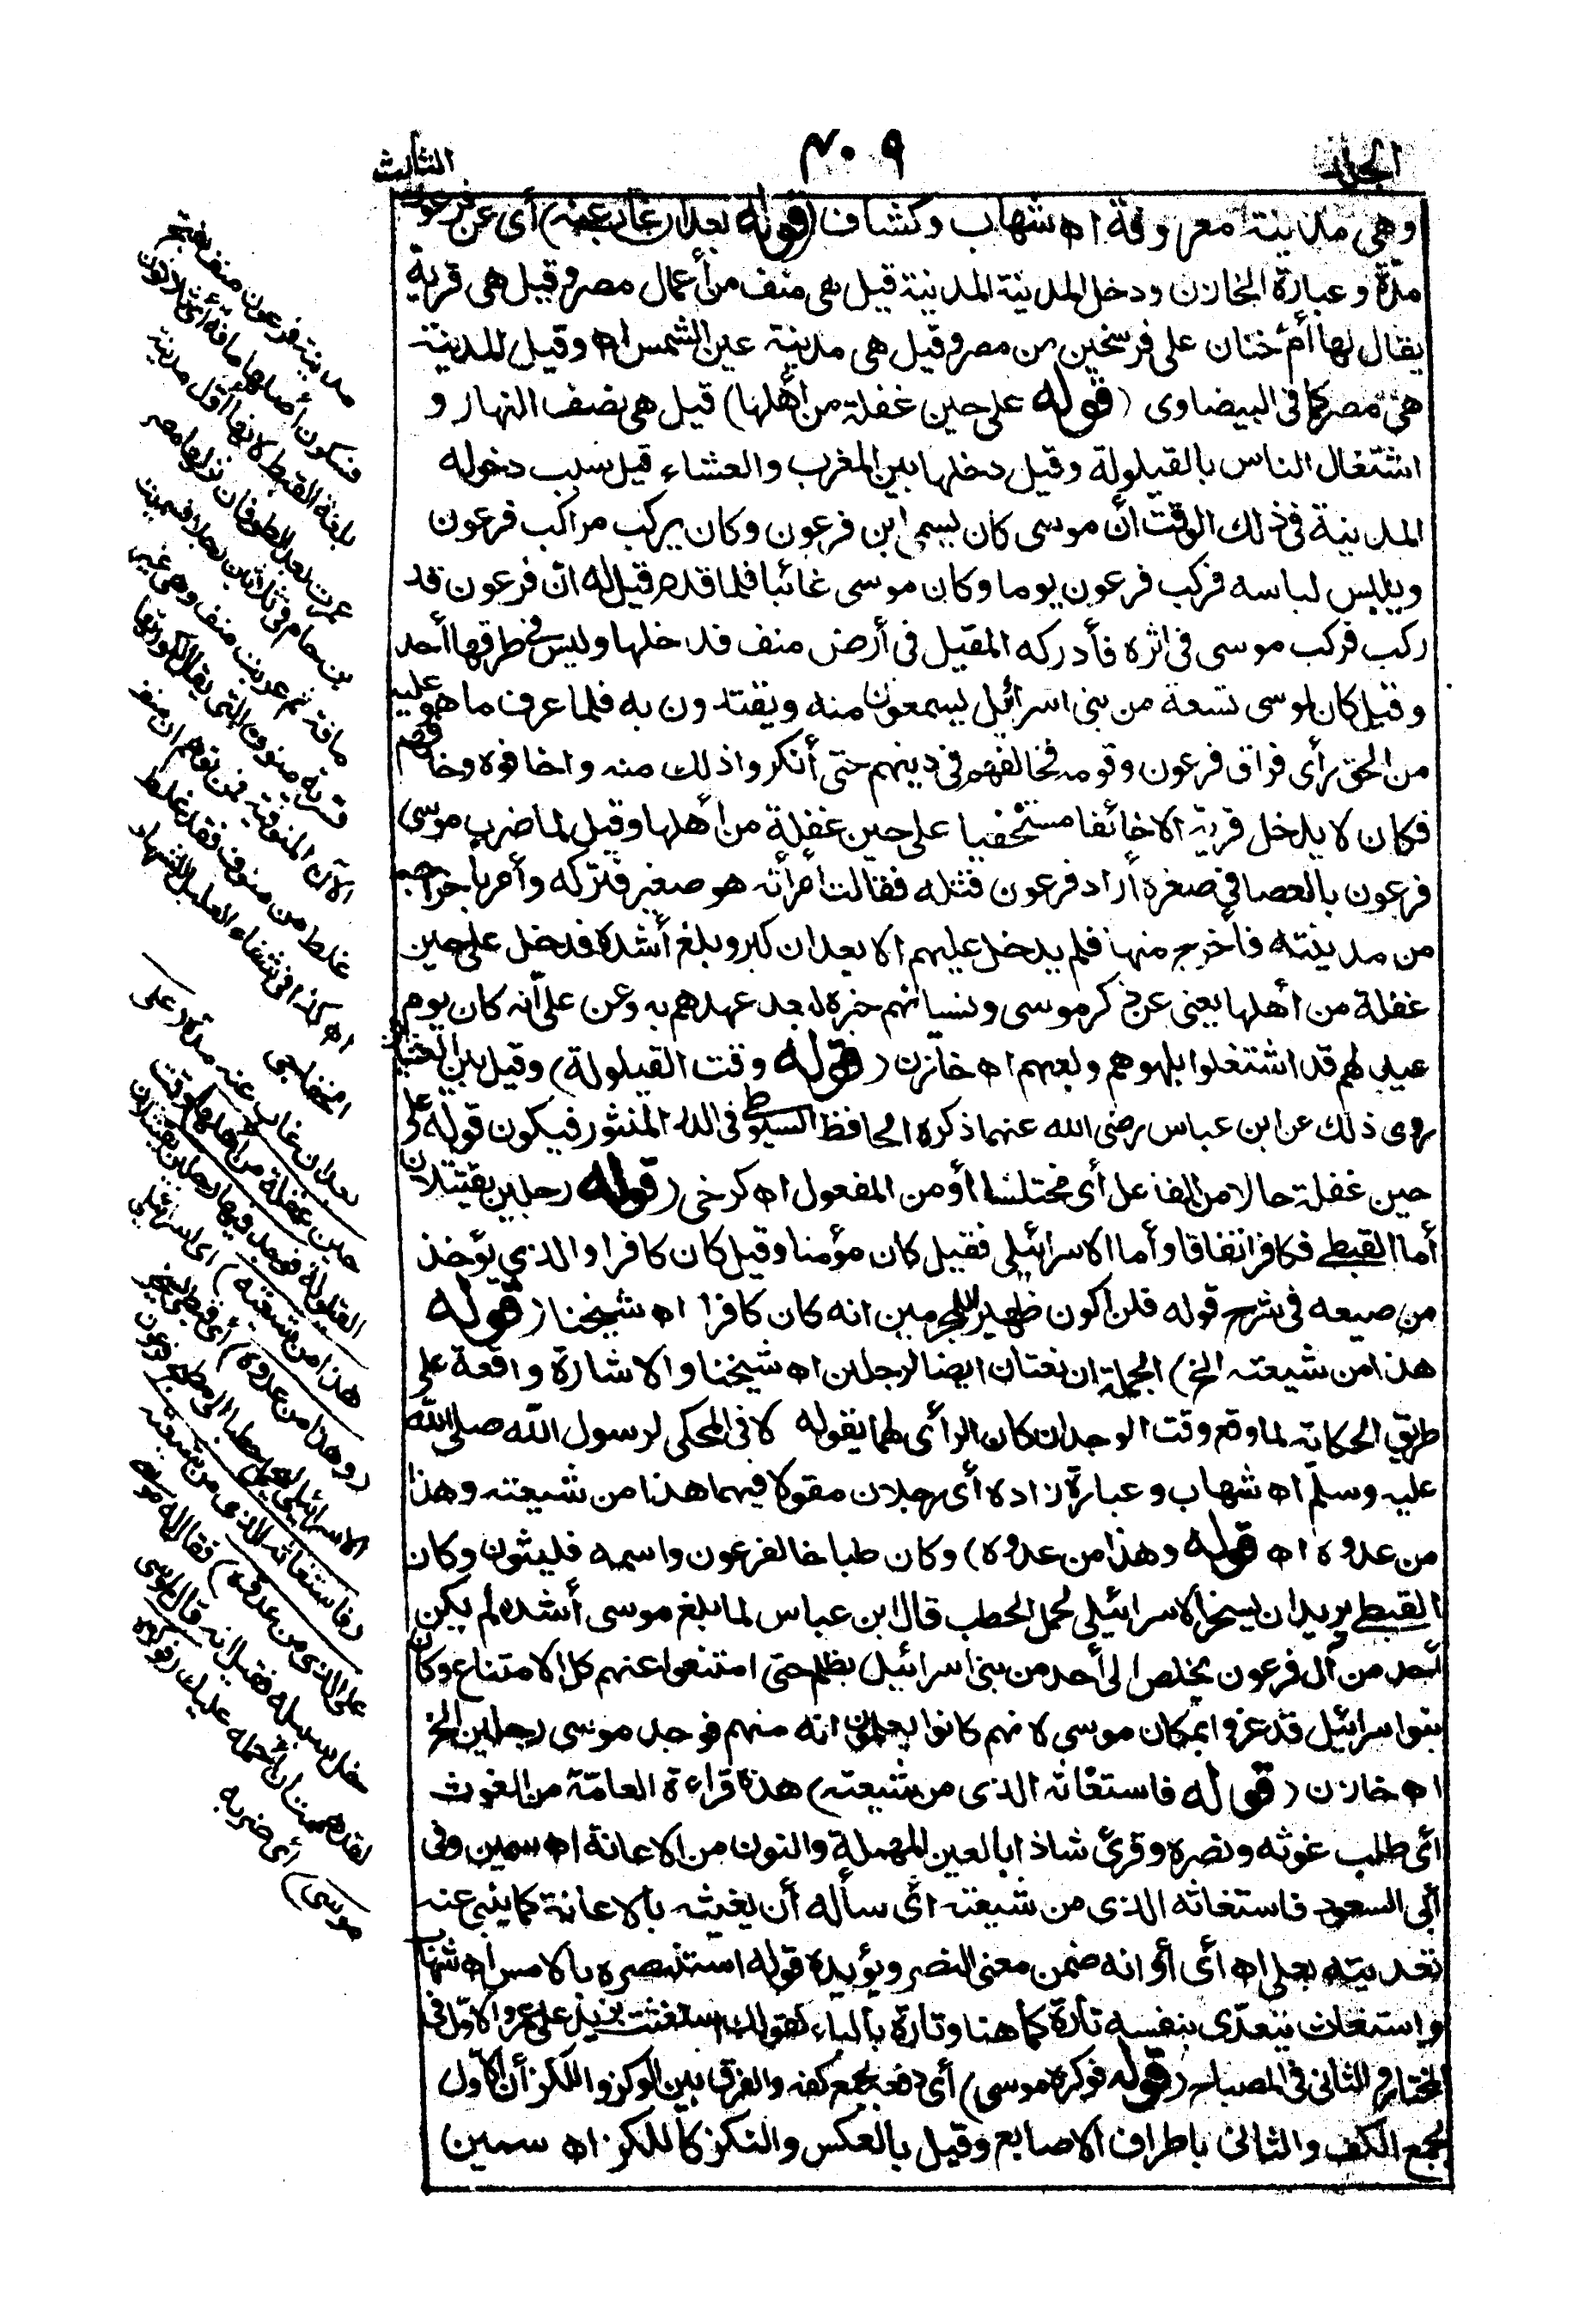 الجلد
٤٠٩
الثالث
وهي مدينة معروفة اه شهاب وكشاف (قوله بعد ان غاب عنه) أى عن فرعون
مدّة وعبارة الخازن ودخل المدينة المدينة قيل هى منف من أعمال مصر وقيل هى قرية
يقال لها أم خنان على فرسخين من مصر وقيل هى مدينة عين الشمس اه وقيل المدينة
هى مصر كما فى البيضاوى (قوله على حين غفلة من أهلها) قيل هى نصف النهار و
اشتغال الناس بالقيلولة وقيل دخلها بين المغرب والعشاء قيل سبب دخوله
المدينة فى ذلك الوقت أن موسى كان يسمى ابن فرعون وكان يركب مراكب فرعون
ويلبس لباسه فركب فرعون يوما وكان موسى غائبا فلما قدم قيل له انّ فرعون قد
ركب فركب موسى فى اثره فأدركه المقيل فى أرض منف فدخلها وليس فى طرقها أحد
وقيل كان لموسى شيعة من بنى اسرائيل يسمعون منه ويقتدون به فلما عرف ما هو عليه
من الحق رأى فراق فرعون وقومه فخالفهم فى دينهم حتى أنكروا ذلك منه واخافوه وخافهم
فكان لا يدخل قرية الا خائفا مستخفيا على حين غفلة من أهلها وقيل لما ضرب موسى
فرعون بالعصا فى صغره أراد فرعون قتله فقالت امرأته هو صغير فتركه وأمر باخراجه
من مدينته فأخرج منها فلم يدخل عليهم الا بعد ان كبر وبلغ أشده فدخل على حين
غفلة من أهلها يعنى عن ذكر موسى ونسيانهم خبره لبعد عهدهم به وعن علىّ أنه كان يوم
عيد لهم قد اشتغلوا بلهوهم ولعبهم اه خازن (قوله وقت القيلولة) وقيل بين العشاءين
روى ذلك عن ابن عباس رضى الله عنهما ذكره الحافظ السيوطى فى الدر المنثور فيكون قوله على
حين غفلة حالا من الفاعل أى مختلسا أو من المفعول اه كرخى (قوله رجلين يقتتلان
أما القبطى فكافر اتفاقا وأما الاسرائيلى فقيل كان مؤمنا وقيل كان كافرا والذى يؤخذ
من صيعه فى شرح قوله فلن اكون ظهيرا للمجرمين انه كان كافرا اه شيخنا (قوله
هذا من شيعته الخ) الجملتان نعتان ايضا لرجلين اه شيخنا والاشارة واقعة على
طريق الحكاية لما وقع وقت الوجدان كان الرأى لهما يقوله لا فى المحكى لرسول الله صلى الله
عليه وسلم اه شهاب وعبارة زاده أى رجلان مقولا فيهما هذا من شيعته وهذا
من عدوه اه قوله وهذا من عدوه) وكان طباخا لفرعون واسمه فليثون وكان
القبطى يريد ان يسخر الاسرائيلى لحمل الحطب قال ابن عباس لما بلغ موسى أشده لم يكن
أحد من آل فرعون يخلص الى أحد من بنى اسرائيل بظلم حتى امتنعوا عنهم كل الامتناع وكان
بنوا سرائيل قد عزوا بمكان موسى لانهم كانوا يعلمون انه منهم فوجد موسى رجلين الخ
اه خازن (قوله فاستغاثه الذى من شيعته) هذه قراءة العامّة من الغوث
أى طلب غوثه ونصره وقرئ شاذا بالعين المهملة والنون من الاعانة اه سمين وفى
أبى السعود فاستغاثه الذى من شيعته أى سأله أن يغيثه بالاعانة كما ينبئ عنه
تعديته بعلى اه أى أو انه ضمن معنى النصر ويؤيده قوله استنصره بالامس اه شهاب
واستغاث يتعدّى بنفسه تارة كما هنا وتارة بالباء كقولك استغثت بزيد على عمرو الاوّل فى
المختار والثانى فى المصباح (قوله فوكزه موسى) أى دفعه بجمع كفه والفرق بين الوكز واللكز أن الأوّل
بجمع الكف والثانى باطراف الاصابع وقيل بالعكس والنكز كاللكز اه سمين
مدينة فرعون منف بفتح
فسكون أصلها مافه أى ثلاثون
بلغة القبط لانها أوّل مدينة
عمرت بعد الطوفان نزلها مصر
بن حام فى ثلاثين رجلا فسميت
مافة ثم عربت منف وهى غير
قرية منوف التى يقال لكورتها
الآن المنوفية فمن توهم ان منف
غلط من منوف فقد غلط
اه كذا فى شفاء الغليل للشهاب
الخفاجى
بعد ان غاب عنه مدة (على
حين غفلة من أهلها) وقت
القيلولة فوجد فيها رجلين يقتتلان
هذا من شيعته) اى اسرائيلى
(وهذا من عدوه) أى قبطى يسخر
الاسرائيلى ليحمل حطبا الى مطبخ فرعون
(فاستغاثه الذى من شيعته
على الذى من عدوه) فقال له موسى
خل سبيله فقيل انه قال لموسى
لقد هممت ان أحمله عليك (فوكزه
موسى) أى ضربه